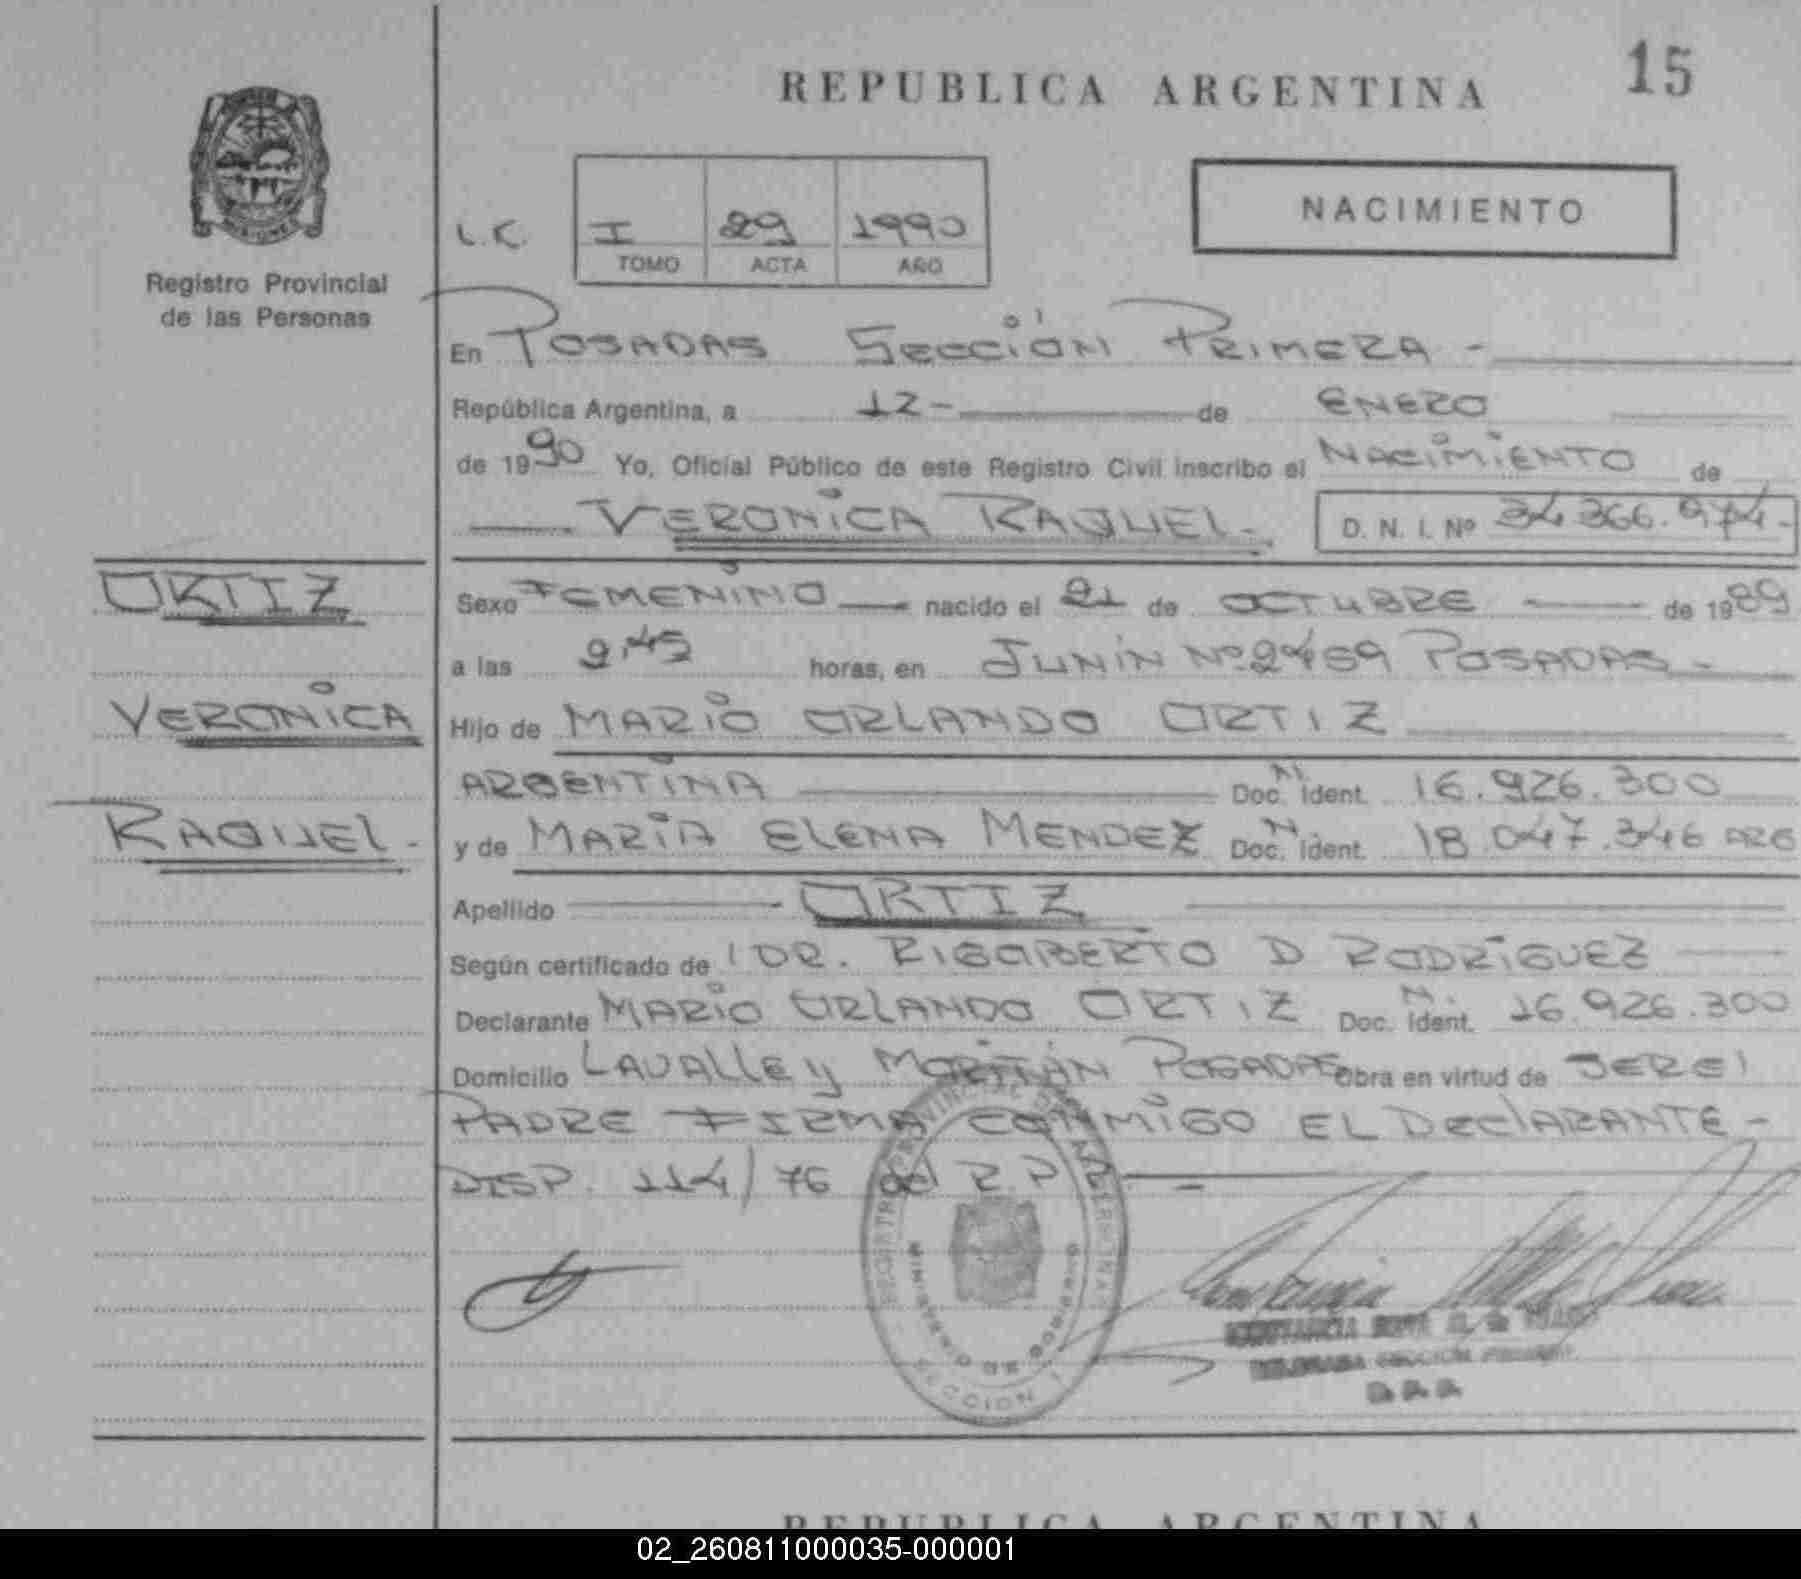 REPUBLICA ARGENTINA
15
Registro Provincial
de las Personas
L.C.
I 29 1990
TOMO ACTA AÑO
NACIMIENTO
En POSADAS SECCIÓN PRIMERA -
República Argentina, a 12- de ENERO
de 1990 Yo, Oficial Público de este Registro Civil inscribo el NACIMIENTO de
VERONICA RAQUEL- D. N. I. Nº 34.366.974-
ORTIZ
VERONICA
RAQUEL-
Sexo FEMENINO nacido el 21 de OCTUBRE de 1989
a las 9,45 horas, en JUNIN Nº 2459 POSADAS-
Hijo de MARIO ORLANDO ORTIZ
ARGENTINA Doc. N. Ident. 16.926.300
y de MARIA ELENA MENDEZ Doc. N. Ident. 18.047.346 ARG
Apellido ORTIZ
Según certificado de DR. RIGOBERTO D RODRIGUEZ
Declarante MARIO ORLANDO ORTIZ Doc. N. Ident. 16.926.300
Domicilio LAVALLE y POSADAS Obra en virtud de SER EL
PADRE FIRMA CONMIGO EL DECLARANTE-
DISP. 114/76 del R.P
REGISTRO PROVINCIAL DE LAS PERSONAS
MINISTERIO DE GOBIERNO
SECCION 1
REPUBLICA ARGENTINA
02_260811000035-000001